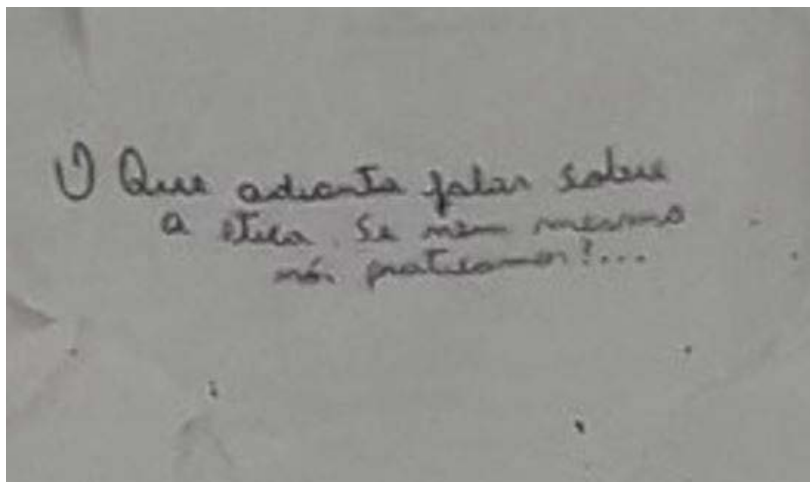 O Que adianta falar sobre
a etica. Se nem mesmo
nós praticamos!...